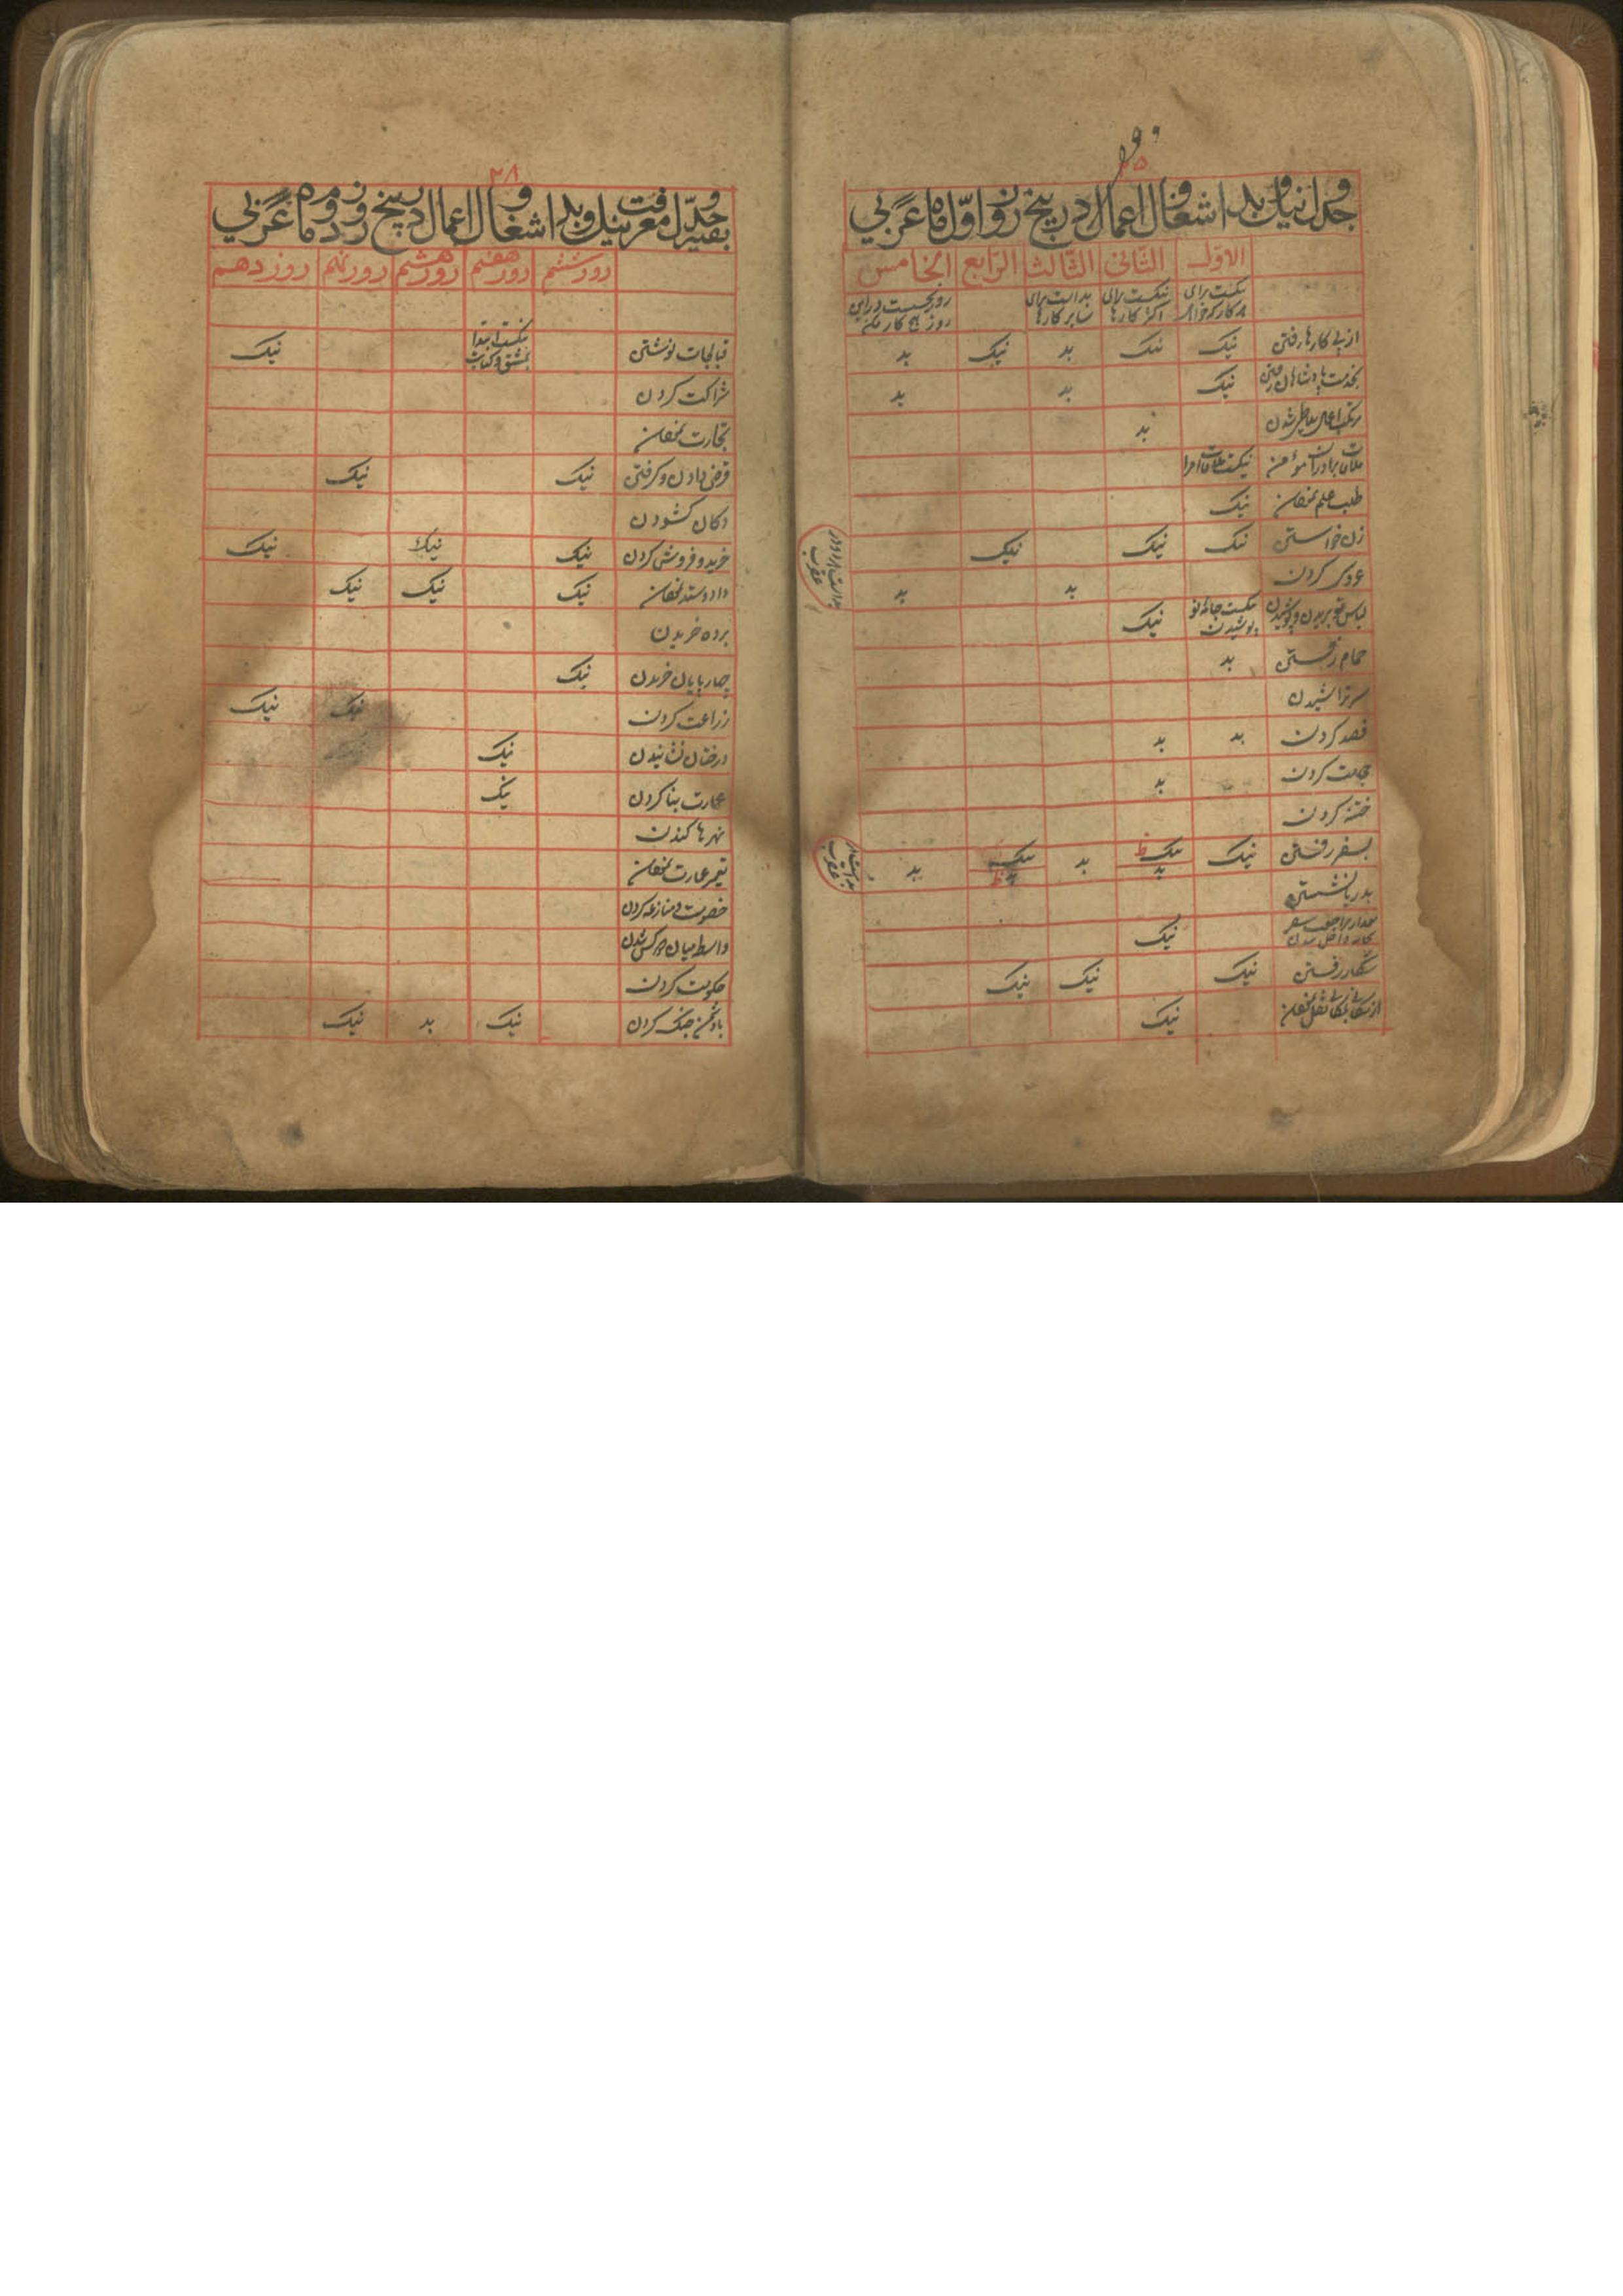 جدول نیک و بد اشغال و اعمال در پنج روز اول ماه عربی
الاول الثانی الثالث الرابع الخامس
نیکست برای هر کار که خواهی نیکست برای اکثر کارها بد است برای سایر کارها روز نحسست در این روز هیچ کار مکن
از پی کارها رفتن نیک نیک بد نیک بد
بخدمت پادشاهان رفتن نیک بد بد
شدن بد
ملاقات برادران مؤمن نیکست ملاقات امرا
طلب علم نمودن نیک
زن خواستن نیک نیک نیک
بد است اگر در عقرب
عروسی کردن بد بد
لباس نو بریدن و پوشیدن نیکست جامه نو پوشیدن نیک
حمام رفتن بد
سر تراشیدن
فصد کردن بد بد
حجامت کردن بد
ختنه کردن
بسفر رفتن نیک نیک ظ بد بد نیک بد ظ بد
عقرب
بدریا نشستن
نیک
شکار رفتن نیک نیک نیک
از مکانی بمکانی نقل نمودن نیک
۲۸
بقیه جدول معرفت نیک و بد اشغال و اعمال در پنج روز دوم ماه عربی
روز ششم روز هفتم روز هشتم روز نهم روز دهم
قبالجات نوشتن نیکست ابتدا بمشق و کتابت نیک
شراکت کردن
تجارت نمودن
قرض دادن و گرفتن نیک نیک
دکان گشودن
خرید و فروش کردن نیک نیک نیک
داد و ستد نمودن نیک نیک نیک
برده خریدن
چهارپایان خریدن نیک
زراعت کردن نیک نیک
درختان نشانیدن نیک
عمارت بنا کردن نیک
نهرها کندن
تعمیر عمارت نمودن
خصومت و منازعه کردن
واسطه میان دو کس شدن
حکومت کردن
با دشمن جنگ کردن نیک بد نیک